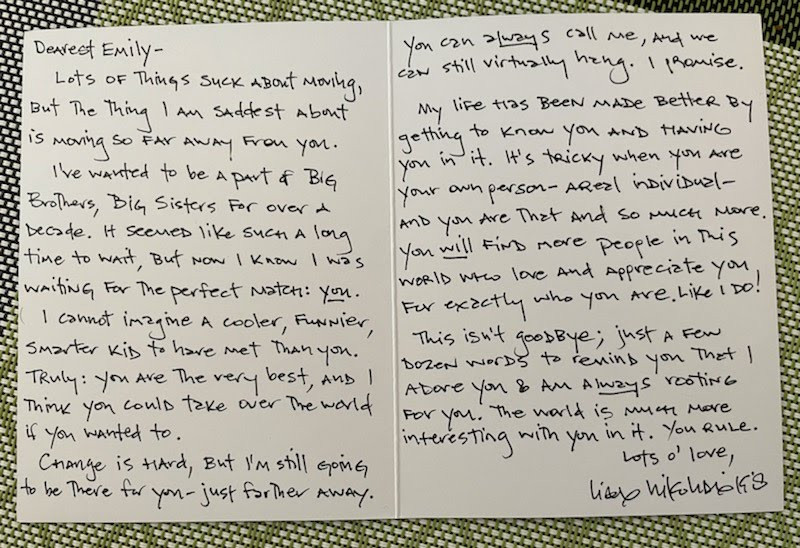 Dearest Emily-
Lots of things suck about moving,
but the thing I am saddest about
is moving so far away from you.
I've wanted to be a part of Big
Brothers, Big Sisters for over a
decade. It seemed like such a long
time to wait, but now I know I was
waiting for the perfect match: you.
I cannot imagine a cooler, funnier,
smarter kid to have met than you.
Truly: you are the very best, and I
think you could take over the world
if you wanted to.
Change is hard, but I'm still going
to be there for you - just farther away.
You can always call me, and we
can still virtually hang. I promise.
My life has been made better by
getting to know you and having
you in it. It's tricky when you are
your own person - a real individual -
and you are that and so much more.
You will find more people in this
world who love and appreciate you
for exactly who you are. Like I do!
This isn't goodbye; just a few
dozen words to remind you that I
adore you & am always rooting
for you. The world is much more
interesting with you in it. You rule.
Lots o' love,